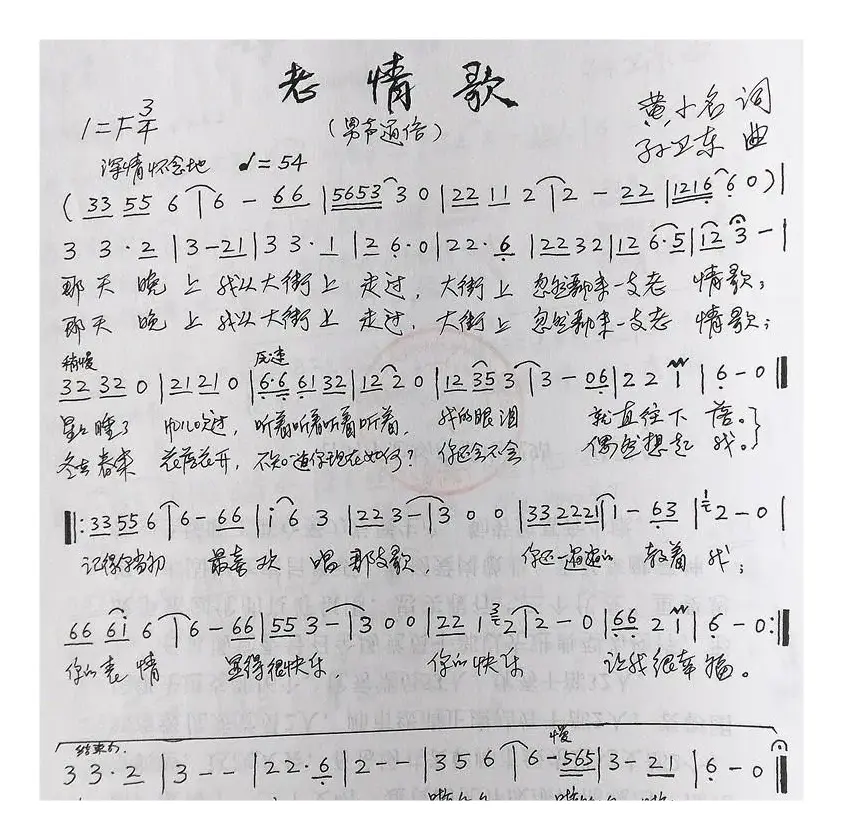 老情歌
1=F 3/4
(男声通俗)
黄小名 词
孙卫东 曲
深情怀念地 ♩=54
(33 55 6 | 6 - 66 | 5653 3 0 | 22 11 2 | 2 - 22 | 1216 6 0) |
3 3·2 | 3 - 21 | 3 3·1 | 2 6·0 | 22·6 | 22 32 | 12 6·5 | 12 3 - |
那天 晚上 我从大街上 走过，大街上 忽然飘来一支老 情歌；
那天 晚上 我从大街上 走过，大街上 忽然飘来一支老 情歌；
稍慢 反连
32 32 0 | 21 21 0 | 6·6 61 32 | 12 2 0 | 12 35 3 | 3 - 06 | 2 2 1 | 6 - 0
星星睡了 听着听着听着听着，我的眼泪 就直往下 落。
冬去春来 花落花开，不知道你现在如何？你还会不会 偶然想起 我。
33 55 6 | 6 - 66 | i 6 3 | 22 3 - | 3 0 0 | 33 2221 | 1 - 63 | 2 - 0 |
记得你当初 最喜欢 唱那支歌， 你还一遍遍的 教着 我；
66 6i 6 | 6 - 66 | 55 3 - | 3 0 0 | 22 1 2 | 2 - 0 | 66 2 1 | 6 - 0 :
你的表情 显得很快乐， 你的快乐 让我很幸福。
结束句. 慢
3 3·2 | 3 - - | 22·6 | 2 - - | 3 5 6 | 6 - 565 | 3 - 21 | 6 - 0